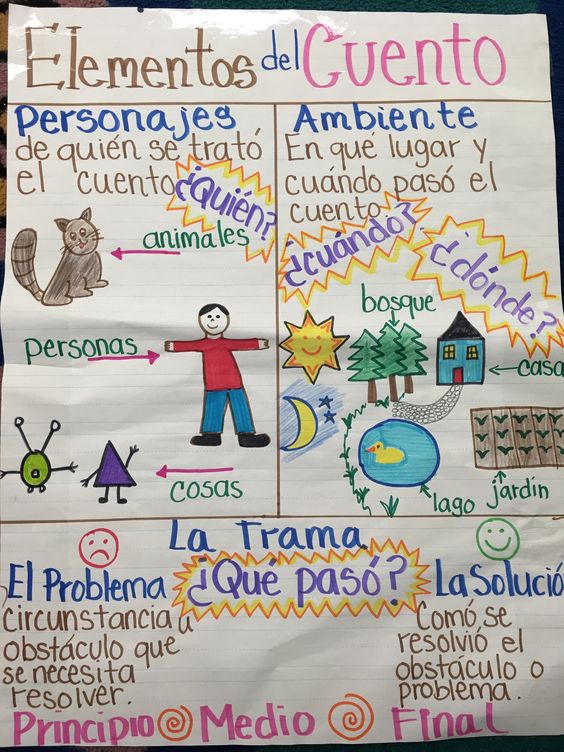 Elementos del Cuento
Personajes
de quién se trató
el cuento
¿Quién?
animales
personas
cosas
Ambiente
En qué lugar y
cuándo pasó el
cuento
¿cuándo?
¿dónde?
bosque
casa
jardín
lago
La Trama
¿Qué pasó?
El Problema
Circunstancia u
obstáculo que
se necesita
resolver.
La Solució
Comó se
resolvió el
obstáculo o
problema.
Principio Medio Final